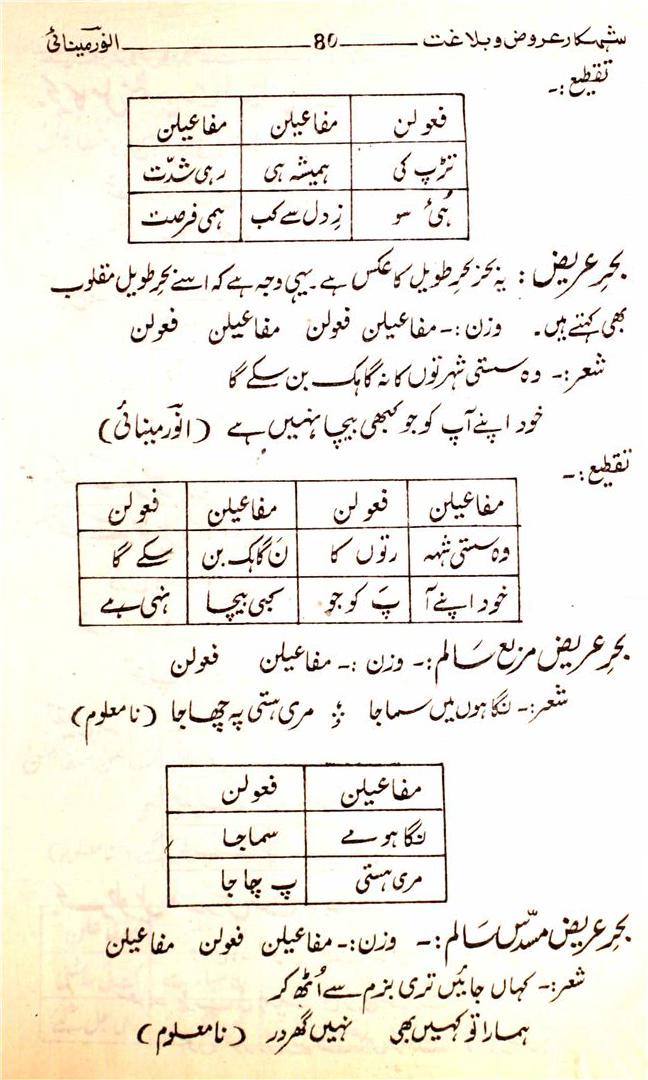 شہکار عروض و بلاغت ــــــ 80 ــــــ انور مینائی
تقطیع :۔
فعولن مفاعیلن مفاعیلن
تڑپ کی ہمیشہ ہی رہی شدّت
ہُئی سو زِدل سے کب ہمی فرصت
بحرِ عریض : یہ بحر بحرِ طویل کا عکس ہے۔ یہی وجہ ہے کہ اسے بحرِ طویل مقلوب
بھی کہتے ہیں۔ وزن :۔ مفاعیلن فعولن مفاعیلن فعولن
شعر :۔ وہ سستی شہرتوں کا نہ گاہک بن سکے گا
خود اپنے آپ کو جو کبھی بیچا نہیں ہے (انور مینائی)
تقطیع :۔
مفاعیلن فعولن مفاعیلن فعولن
وہ سستی شہہ رتوں کا نَ گاہک بن سکے گا
خود اپنے آ پَ کو جو کبی بیچا نہی ہے
بحرِ عریض مربع سَالم :۔ وزن :۔ مفاعیلن فعولن
شعر :۔ نگاہوں میں سما جا ؛ مری ہستی پہ چھا جا (نا معلوم)
مفاعیلن فعولن
نگاہو مے سماجا
مری ہستی پ چا جا
بحرِ عریض مسدّس سَالم :۔ وزن :۔ مفاعیلن فعولن مفاعیلن
شعر :۔ کہاں جائیں تری بزم سے اُٹھ کر
ہمارا تو کہیں بھی نہیں گھر در (نا معلوم)